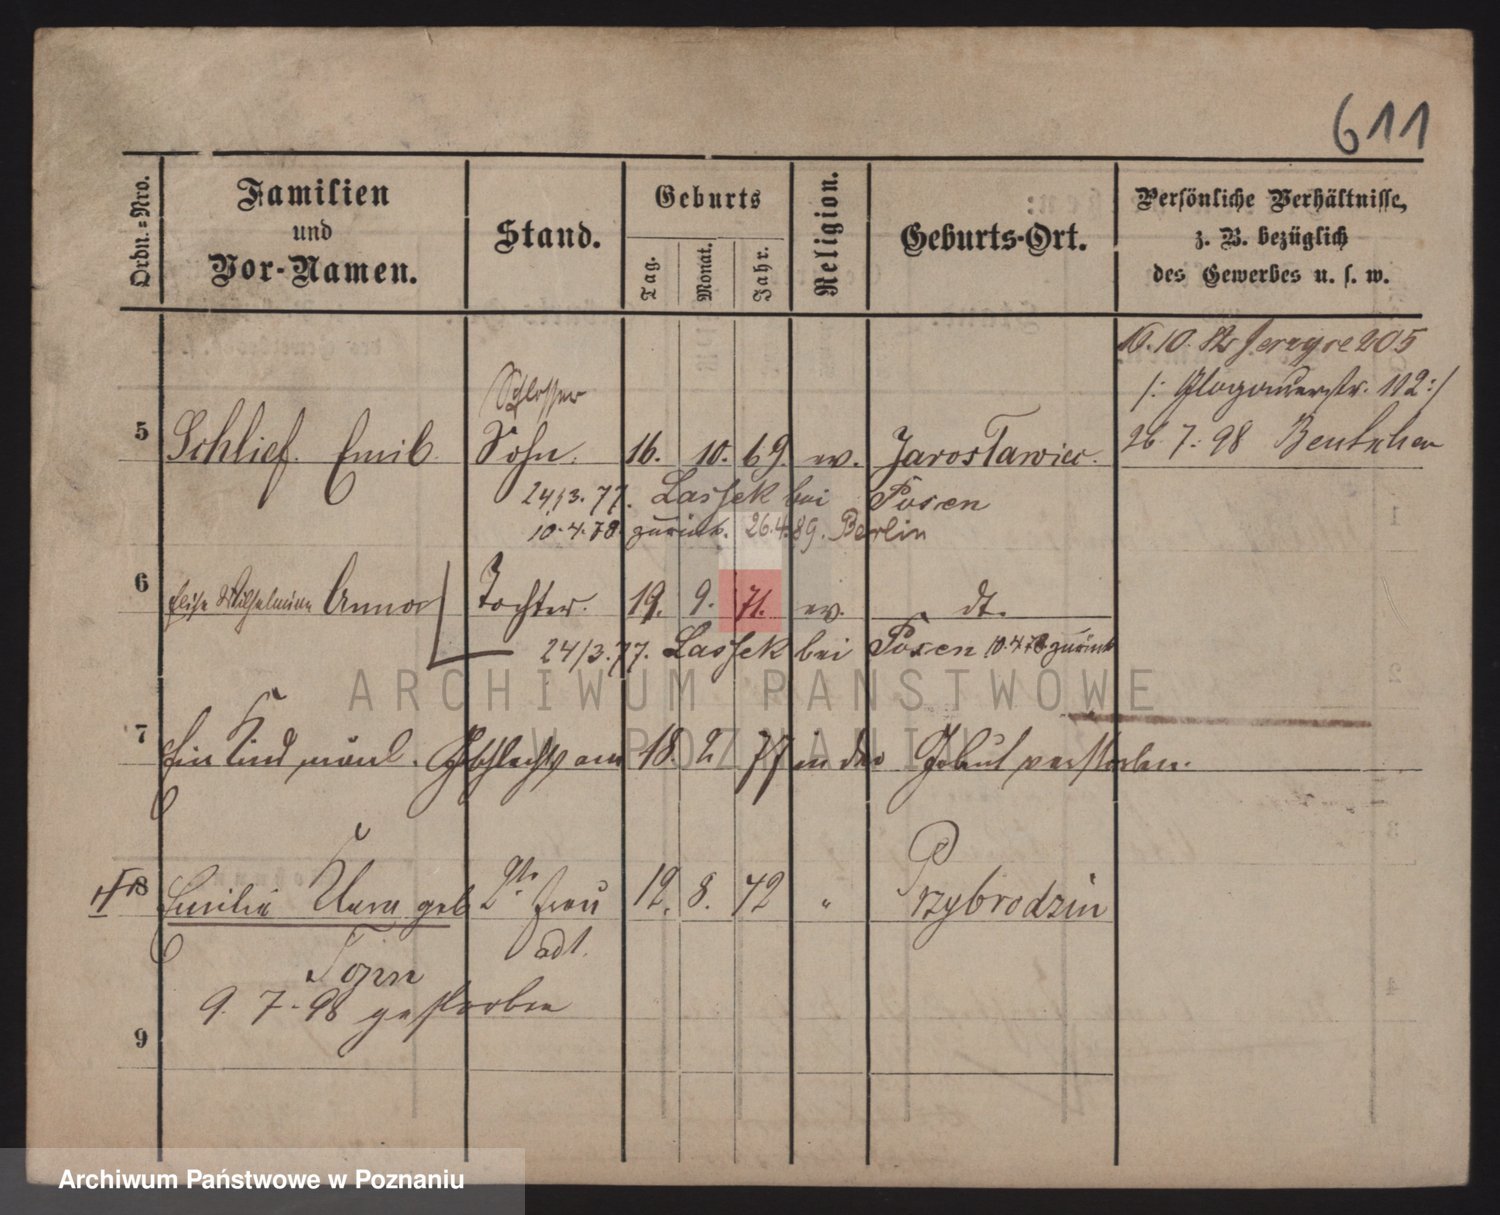 611
Ordn.=Nro.
Familien
und
Vor-Namen.
Stand.
Geburts
Tag.
Monat.
Jahr.
Religion.
Geburts-Ort.
Persönliche Verhältnisse,
z. B. bezüglich
des Gewerbes u. s. w.
16. 10. 82 Jerzyce 205
/: Glogauerstr. 112 :/
26. 7. 98 Bentschen
Schlosser
5 Schlief. Emil. Sohn. 16. 10. 69. ev. Jarosławiec.
24/3. 77. Lassek bei Posen
10. 4. 78. zurück. 26. 4. 89. Berlin
6 Elise Wilhelmine Anna Tochter. 19. 9. 71. ev. dt.
24/3. 77. Lassek bei Posen 10. 4. 78 zurück
7 Ein Kind, männl. Geschlechts am 18. 2. 77 in der Geburt verstorben.
8 Emilie Klara geb. 2te Frau 12. 8. 72 " Przybrodzin
9. 7. 98 gestorben
9
ARCHIWUM PAŃSTWOWE
W POZNANIU
Archiwum Państwowe w Poznaniu